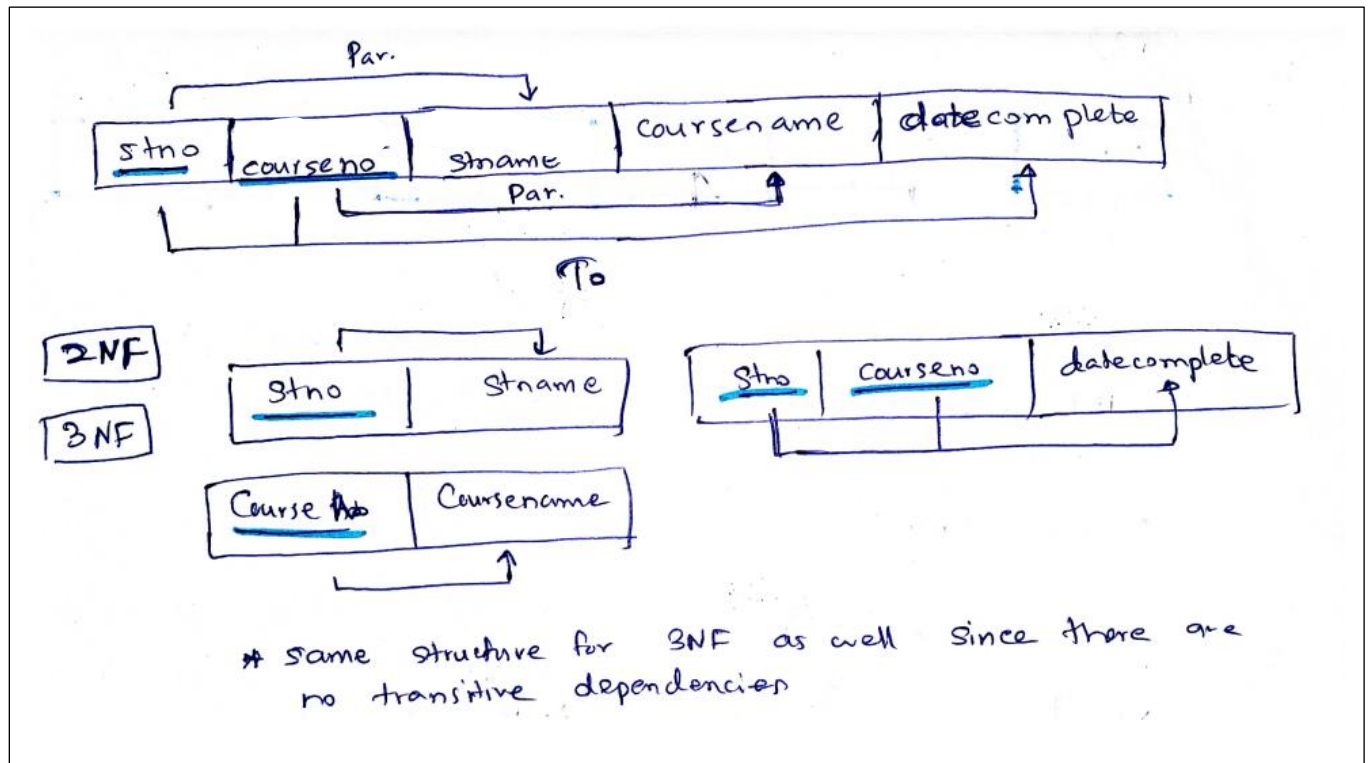 Par.
stno courseno stname coursename datecomplete
Par.
To
2NF
3NF
Stno Stname
Stno courseno datecomplete
Course No Coursename
* same structure for 3NF as well since there are
no transitive dependencies